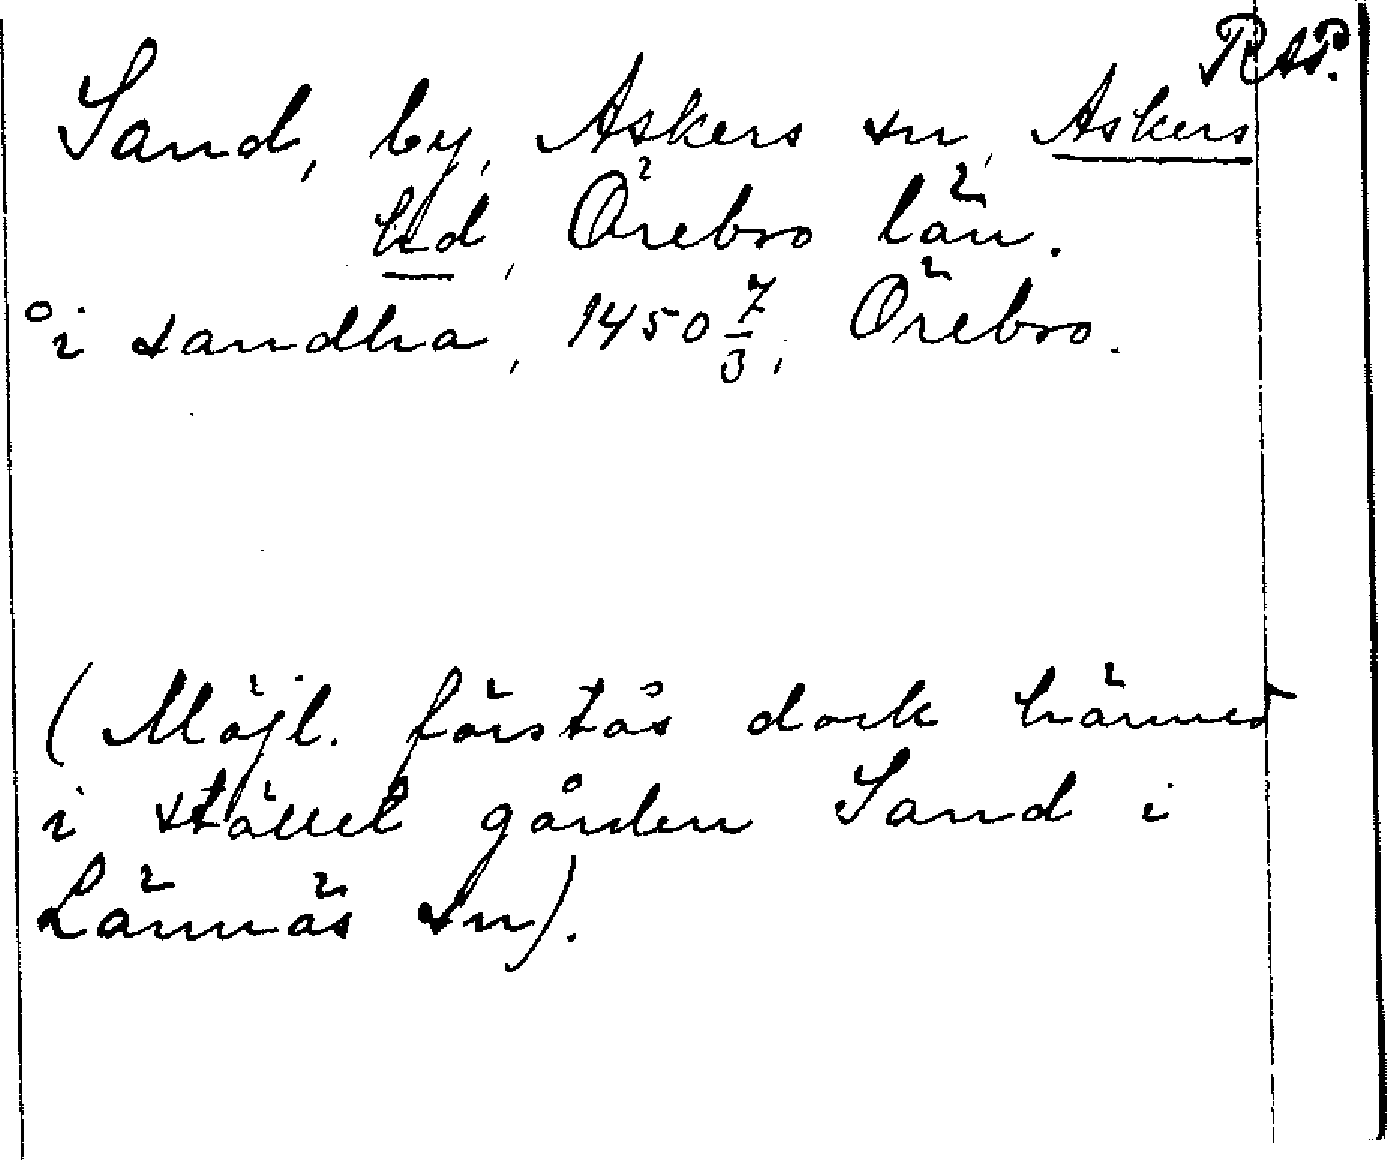 RAP.
Sand, by, Askers sn, Askers
hd, Örebro län.
°i sandha, 1450 7/3, Örebro.
(Möjl. förstås dock härmed
i stället gården Sand i
Lännäs sn).